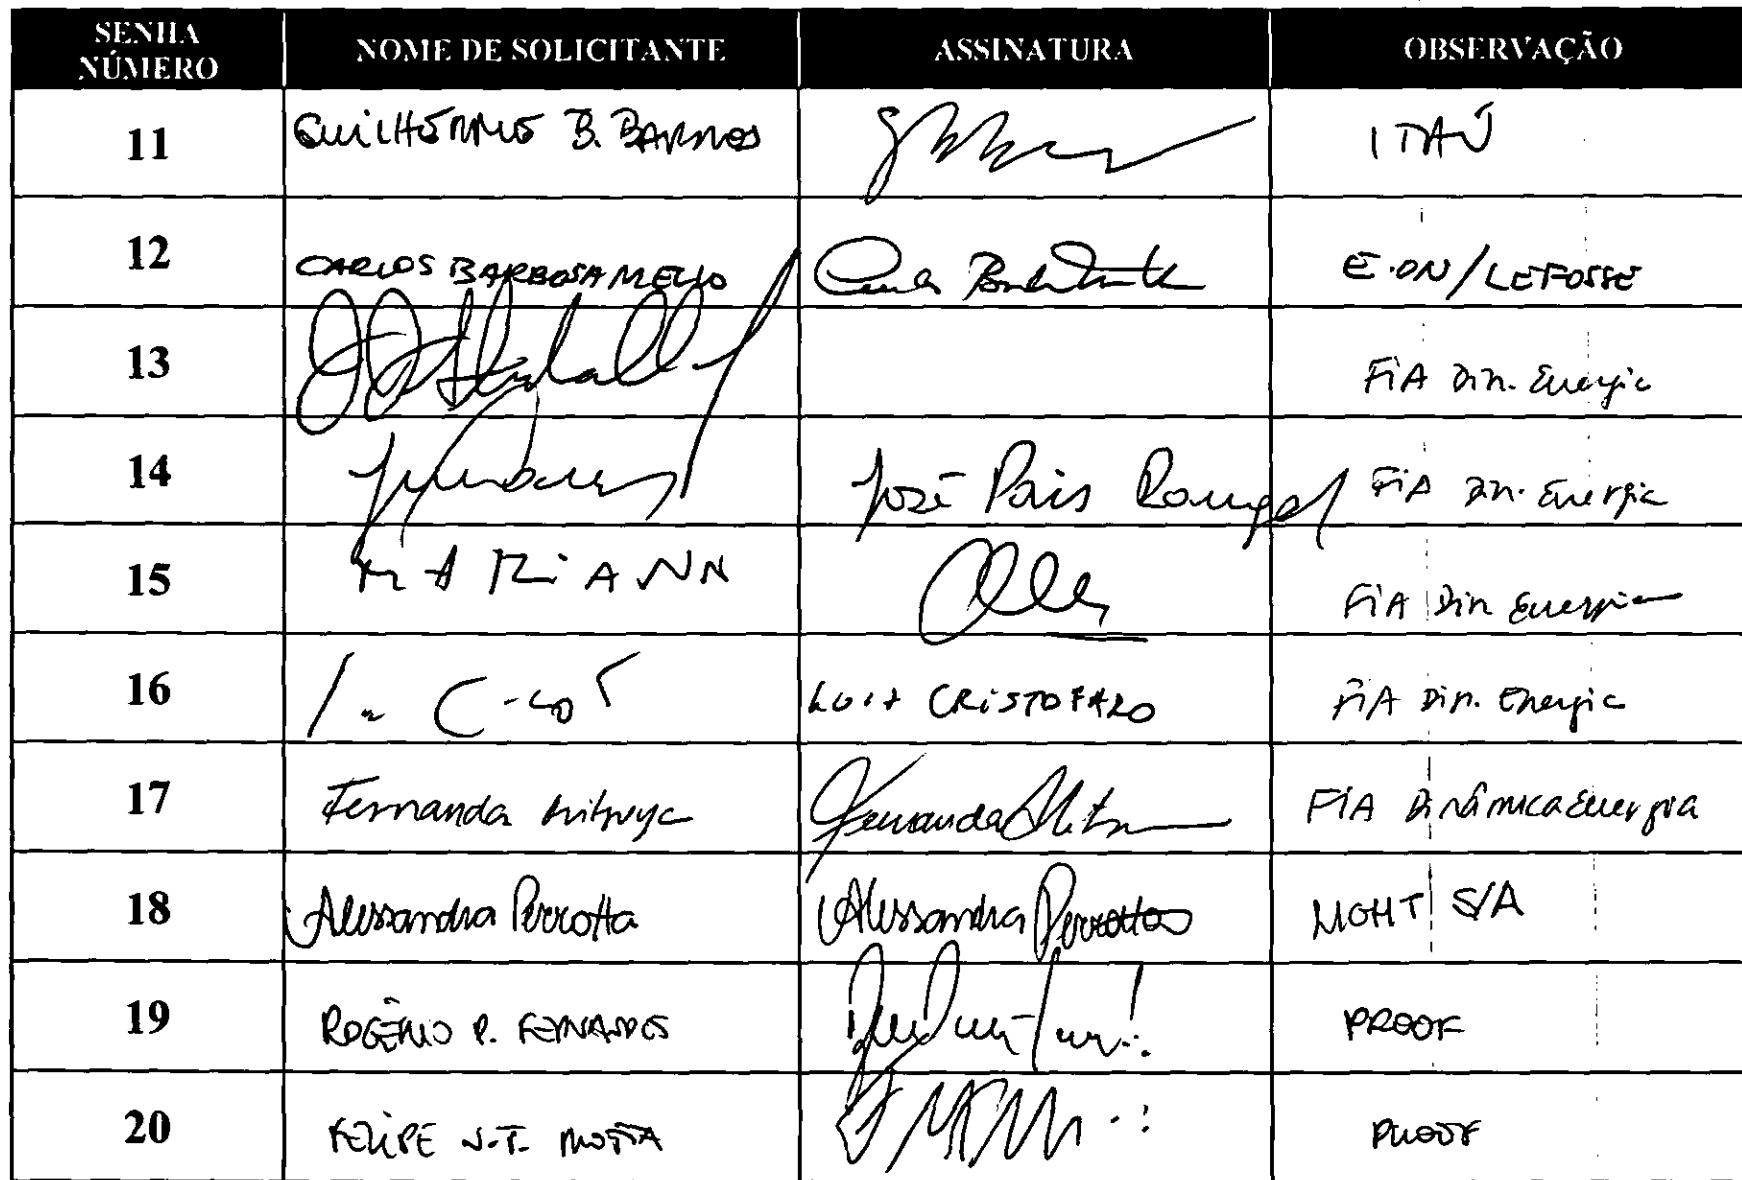 SENHA NÚMERO NOME DE SOLICITANTE ASSINATURA OBSERVAÇÃO
11 GUILHERME B. BARROS ITAÚ
12 CARLOS BARBOSA MELLO E.ON/LEFOSSE
13 FIA Din. Energia
14 José Pais Rangel FIA Din. Energia
15 FIA Din Energia
16 LUIZ CRISTOFARO FIA Din. Energia
17 Fernanda Fernanda FIA Dinâmica Energia
18 Alessandra Perrotta Alessandra Perrotta S/A
19 ROGÉRIO P. FERNANDES PROOF
20 FELIPE MOTTA PROOF